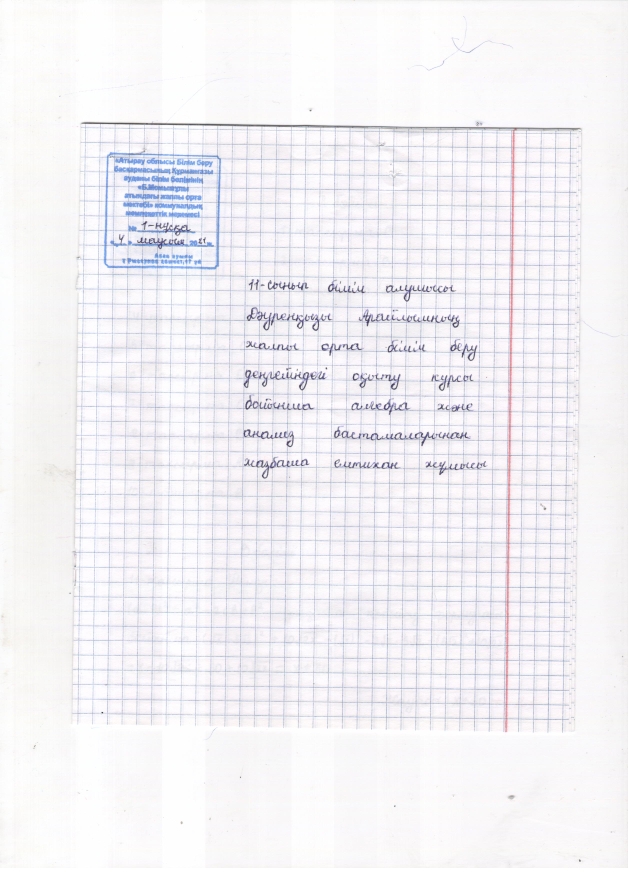 «Атырау облысы Білім беру
басқармасының Құрманғазы
ауданы білім бөлімінің
«Б.Момышұлы
атындағы жалпы орта
мектебі» коммуналдық
мемлекеттік мекемесі
№ 1-нұсқа
«4» маусым 2021 ж
11-сынып білім алушысы
Дәуренқызы Арайлымның
жалпы орта білім беру
деңгейіндегі оқыту курсы
бойынша алгебра және
анализ бастамаларынан
жазбаша емтихан жұмысы